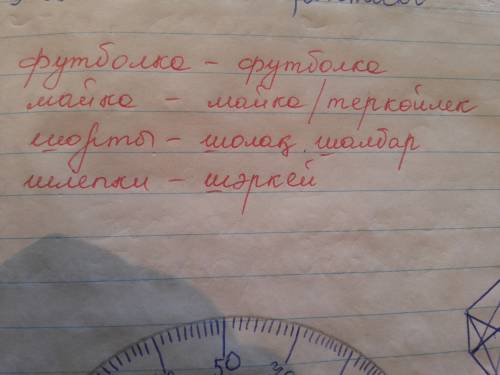 футболка – футболка
майка – майка/теркөйлек
шорты – шолақ шалбар
шлепки – шәркей
50